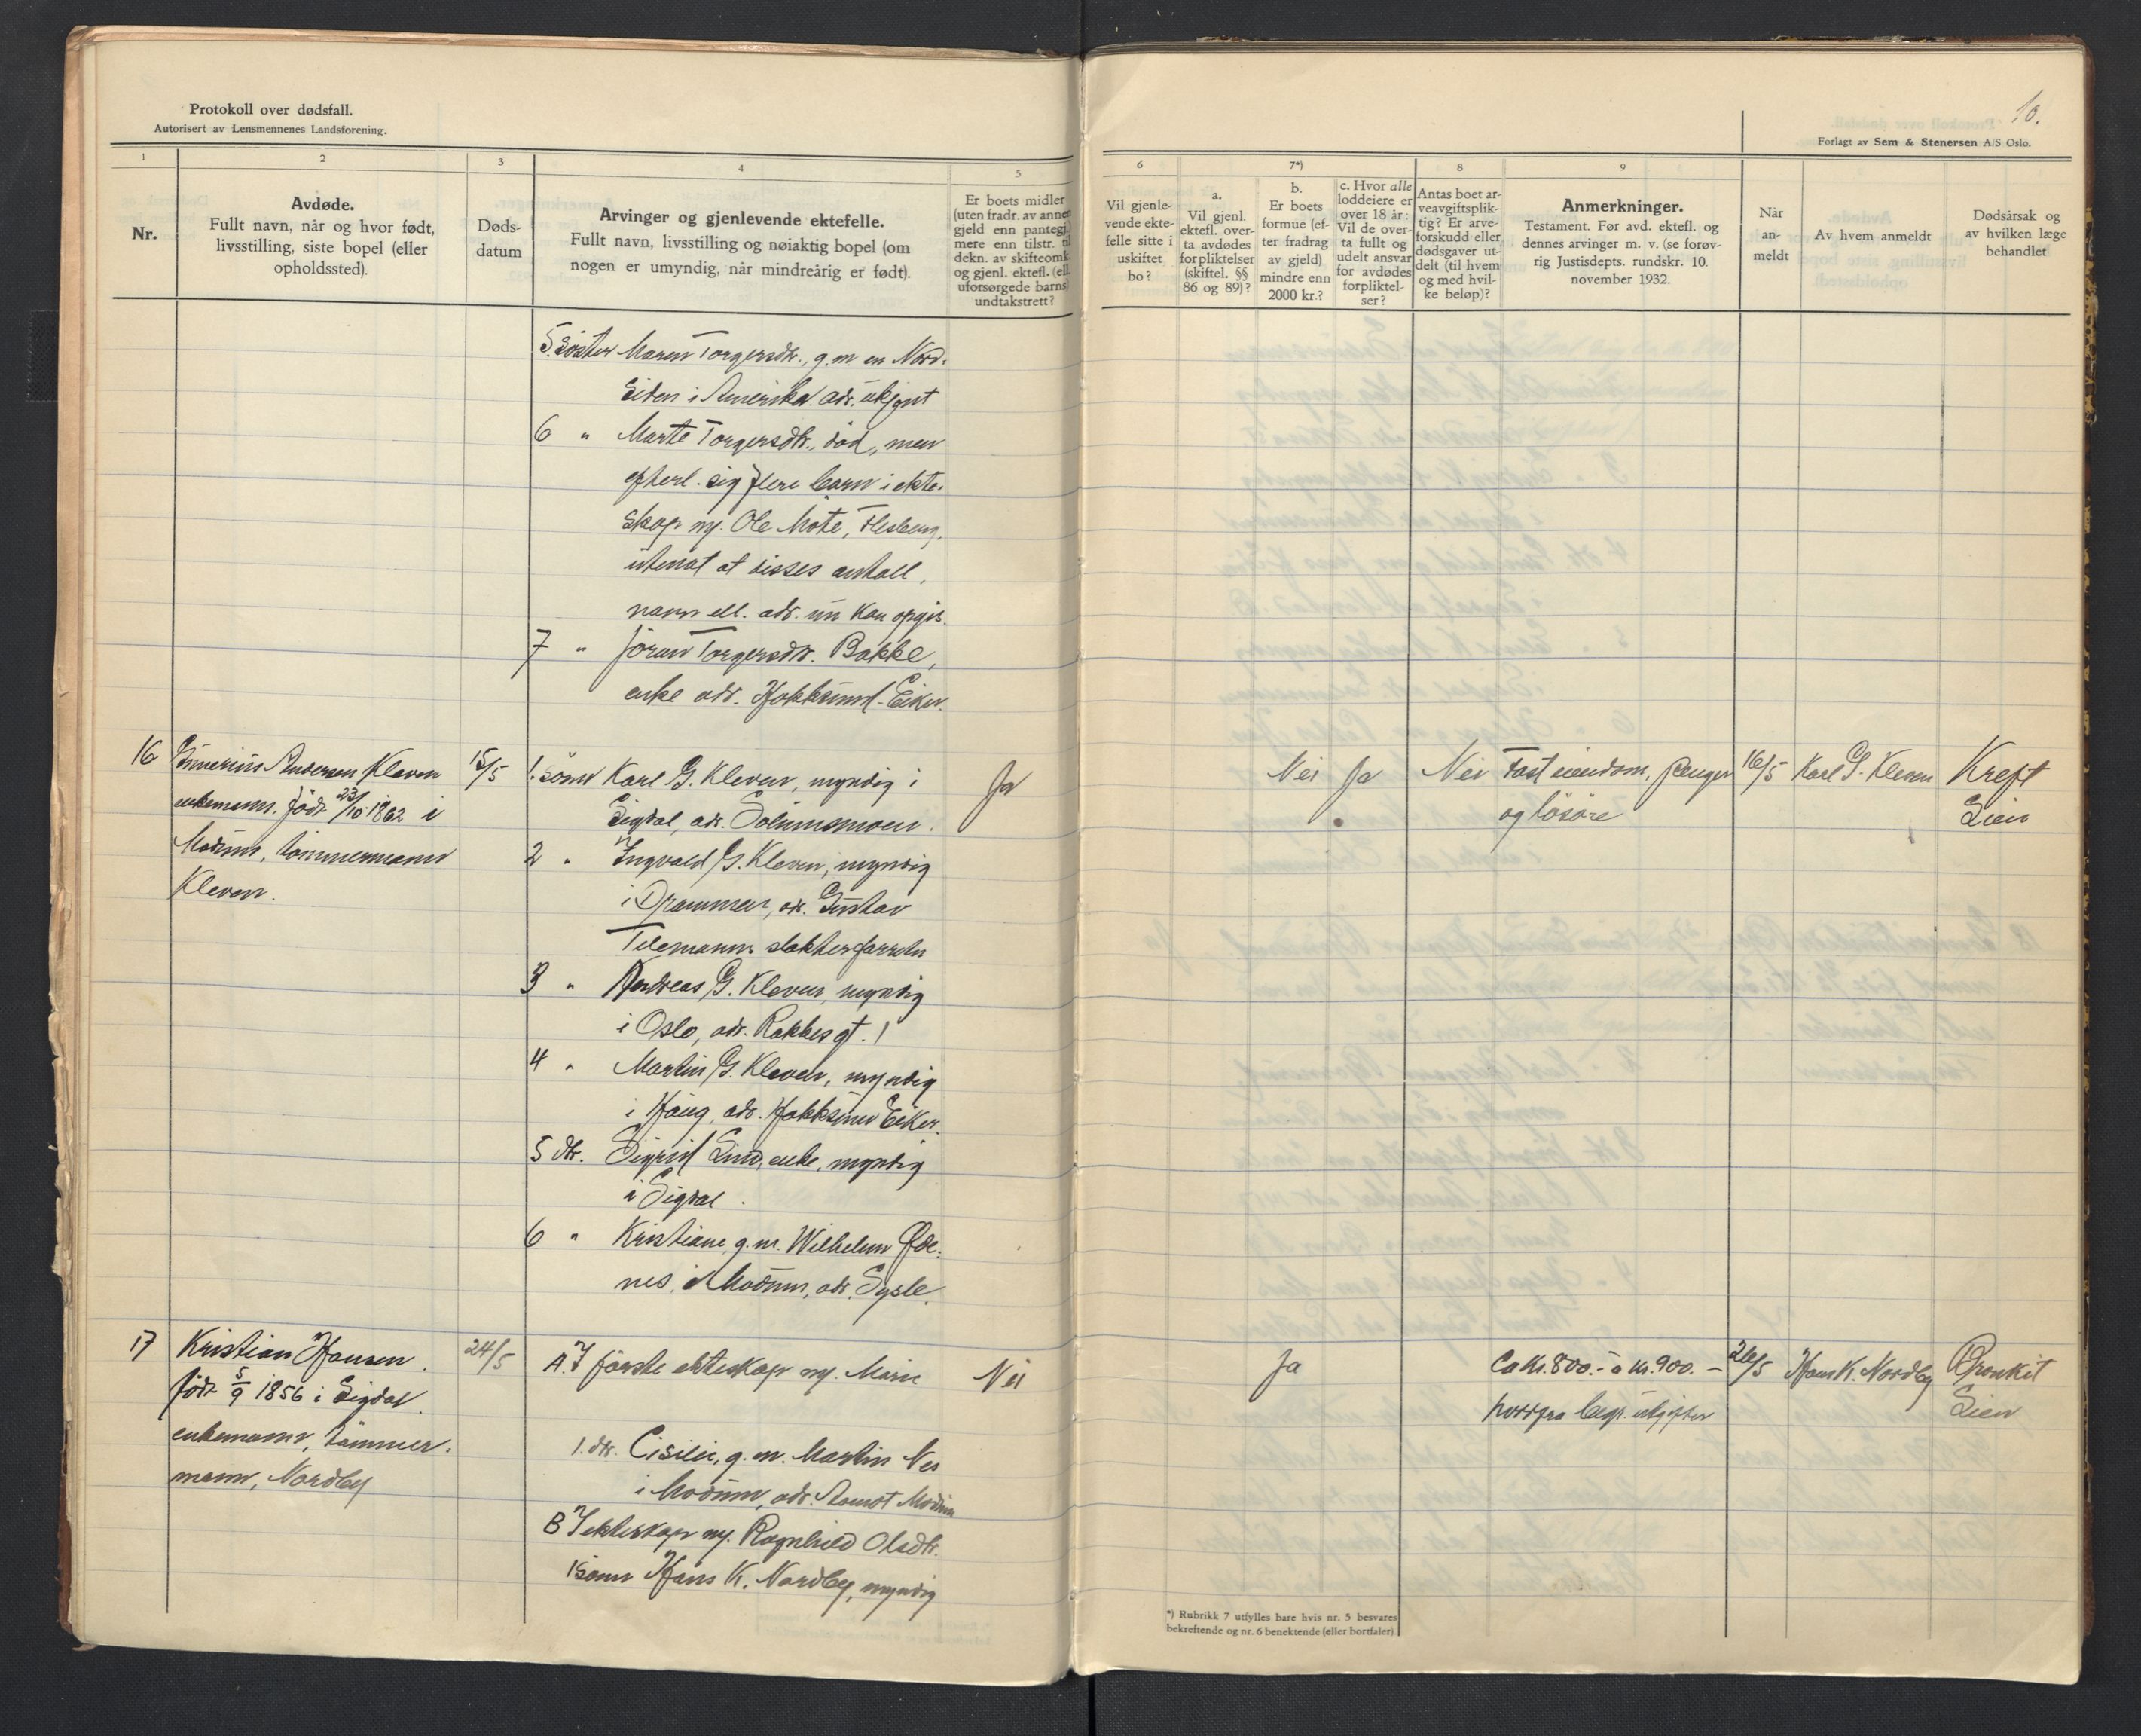 Protokoll over dødsfall.
Autorisert av Lensmennenes Landsforening.
10.
Forlagt av Sem & Stenersen A/S Oslo.
1
2
3
4
5
6
7*)
8
9
Nr.
Avdøde.
Fullt navn, når og hvor født,
livsstilling, siste bopel (eller
opholdssted).
Døds-
datum
Arvinger og gjenlevende ektefelle.
Fullt navn, livsstilling og nøiaktig bopel (om
nogen er umyndig, når mindreårig er født).
Er boets midler
(uten fradr. av annen
gjeld enn pantegj.
mere enn tilstr. til
dekn. av skifteomk.
og gjenl. ektefl. (ell.
uforsørgede barns)
undtakstrett?
Vil gjenle-
vende ekte-
felle sitte i
uskiftet
bo?
a.
Vil gjenl.
ektefl. over-
ta avdødes
forpliktelser
(skiftel. §§
86 og 89)?
b.
Er boets
formue (ef-
ter fradrag
av gjeld)
mindre enn
2000 kr.?
c. Hvor alle
loddeiere er
over 18 år:
Vil de over-
ta fullt og
udelt ansvar
for avdødes
forpliktel-
ser?
Antas boet ar-
veavgiftsplik-
tig? Er arve-
forskudd eller
dødsgaver ut-
delt (til hvem
og med hvil-
ke beløp)?
Anmerkninger.
Testament. Før avd. ektefl. og
dennes arvinger m. v. (se forøv-
rig Justisdepts. rundskr. 10.
november 1932.
Når
an-
meldt
Av hvem anmeldt
Dødsårsak og
av hvilken læge
behandlet
5. Søster Maren Torgersdtr., g.m. en Nord-
Eiden i Amerika adr. ukjent
6 " Marte Torgersdtr., död, men
efterl. sig flere barn i ekte-
skap m/. Ole Mote, Flesberg,
utenat at disses antall,
navn ell. adr. nu kan opgis.
7 " Jöran Torgersdtr. Bakke,
enke adr. Hokksund-Eiker.
16 Andersen Kleven
enkemann. Födt 23/10 1862 i
Modum, tömmermann
Kleven.
15/5
1. Sönn Karl G. Kleven, myndig i
Sigdal, adr. Solumsmoen.
2 " Ingvald G. Kleven, myndig
i Drammen, adr. Gustav
Tilemanns slakterforretn
3 " Andreas G. Kleven, myndig
i Oslo, adr. Rakkesgt. 1
4 " Martin G. Kleven, myndig
i Haug, adr. Hokksund Eiker.
5 dtr. Sigrid Lind, enke, myndig
i Sigdal.
6 " Kristiane g.m. Wilhelm Øde-
nes i Modum, adr. Sysle.
Ja
Nei
Ja
Nei
Fast eiendom, penger
og lösöre
16/5
Karl G. Kleven
Kreft
Lien
17 Kristian Hansen.
födt 5/9 1856 i Sigdal.
enkemann, tömmer-
mann, Nordby
24/5
A. I förste ekteskap m/. Marie
1. dtr. Cisilie, g.m. Martin Nes
i Modum, adr. Åmot Modum
B I ekteskap m/. Ragnhild Olsdtr.
1 sönn Hans K. Nordby, myndig
Nei
Ja
Ca Kr. 800.- à kr. 900.-
herfra begr. utgifter
26/5
Hans K. Nordby
Bronkit
Lien
*) Rubrikk 7 utfylles bare hvis nr. 5 besvares
bekreftende og nr. 6 benektende (eller bortfaler).